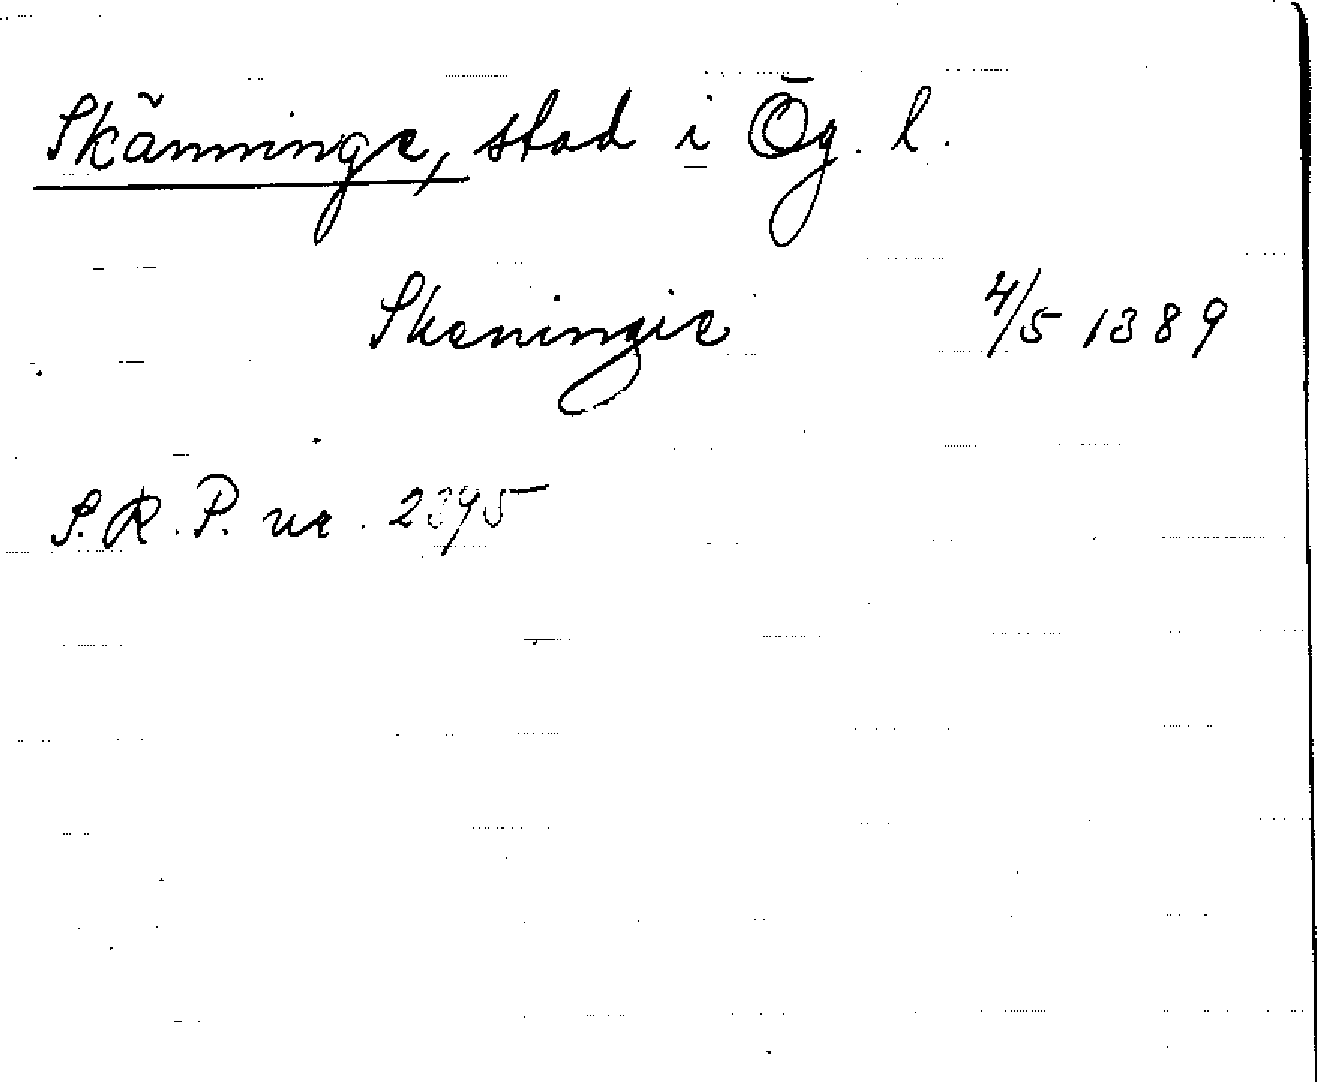 Skänninge, stad i Ög. l.
Skeningie 4/5 1389
S.R.P. nr. 2395